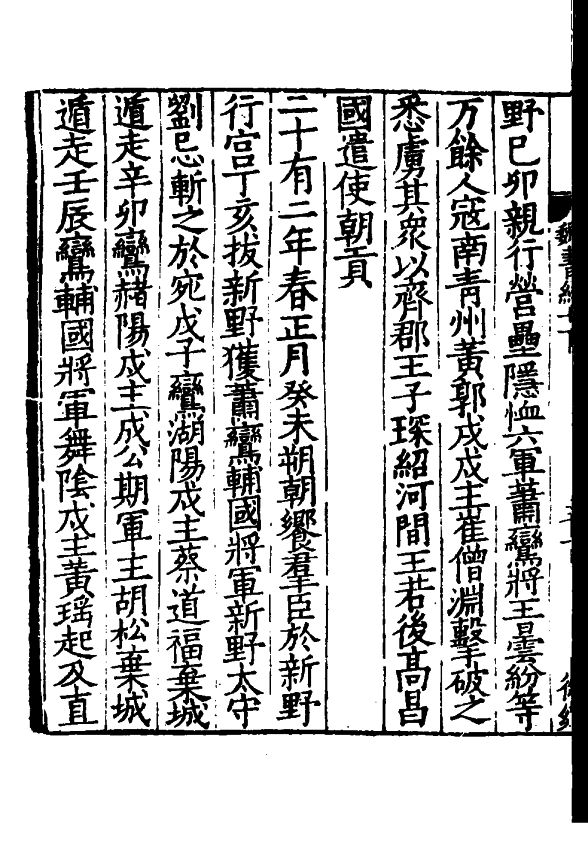 野己卯親行營壘隱恤六軍蕭鸞將王曇紛等
万餘人寇南青州黃郭戍戍主崔僧淵擊破之
悉虜其衆以齊郡王子琛紹河間王若後高昌
國遣使朝貢
二十有二年春正月癸未朔朝饗羣臣於新野
行宮丁亥拔新野獲蕭鸞輔國將軍新野太守
劉忌斬之於宛戊子鸞湖陽戍主蔡道福棄城
遁走辛卯鸞赭陽戍主成公期軍主胡松棄城
遁走壬辰鸞輔國將軍舞陰戍主黃瑶起及直